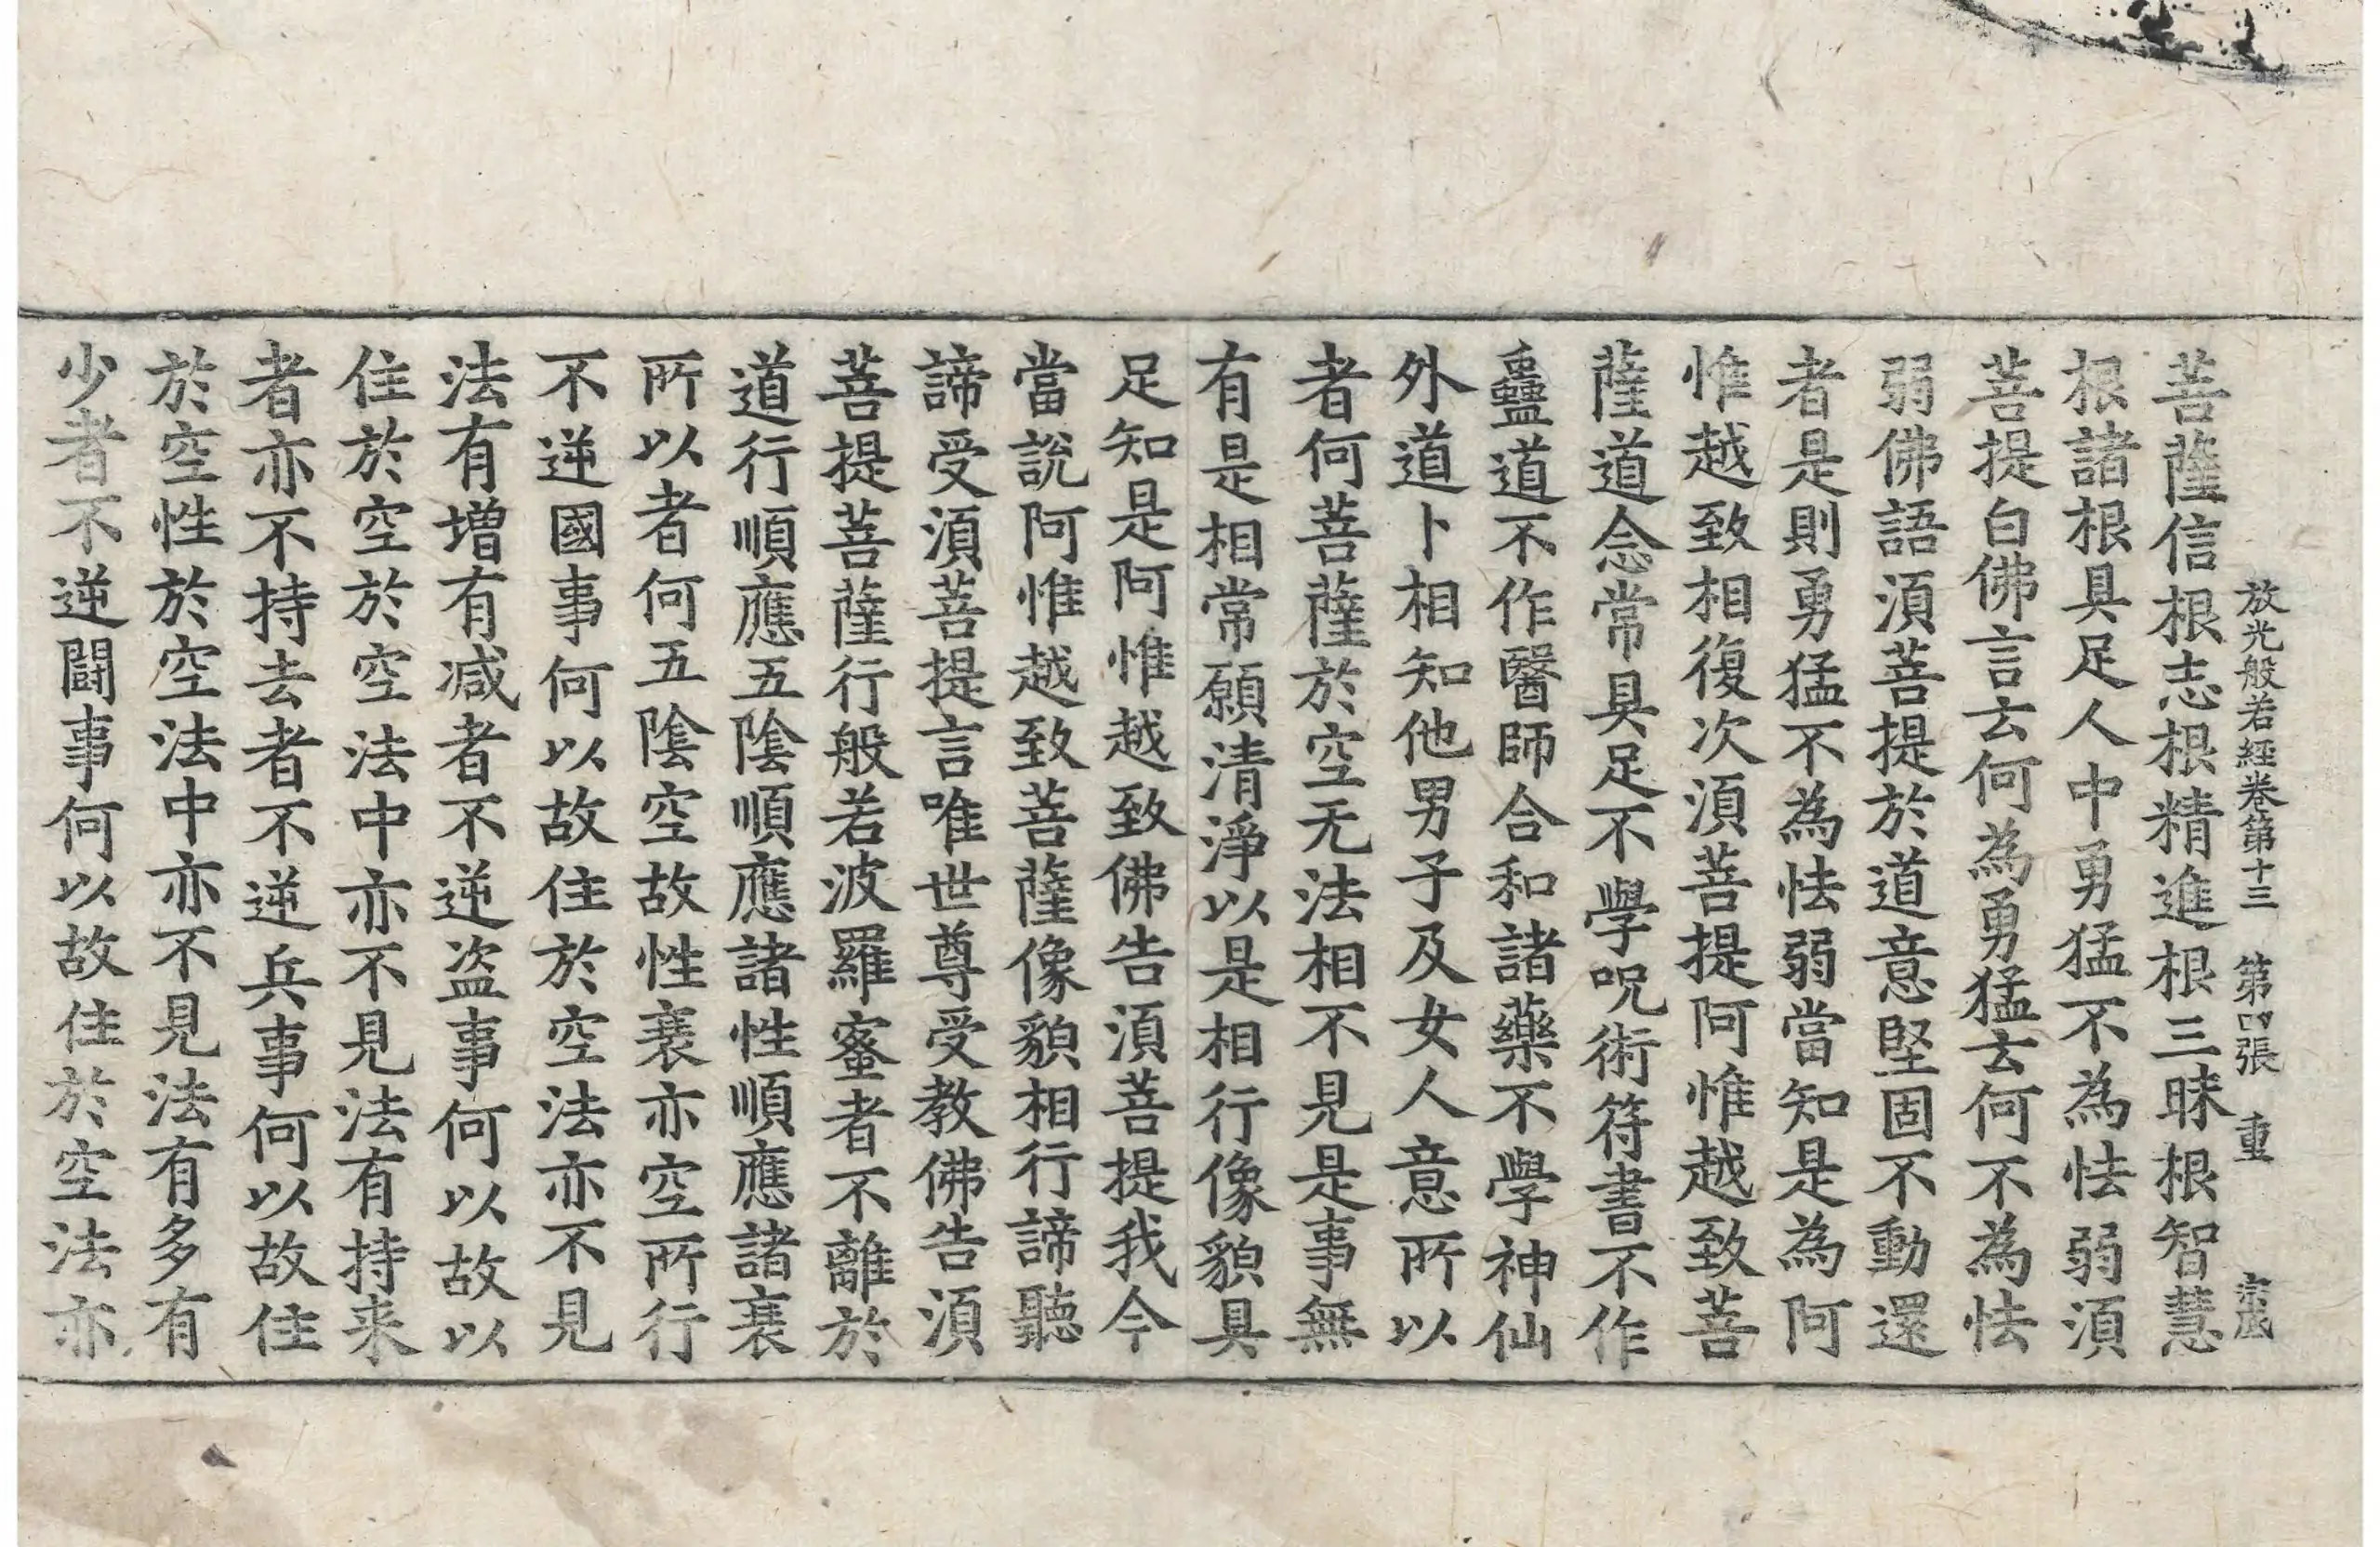 放光般若經卷第十三　第四張　重　宗成
菩薩信根志根精進根三昧根智慧
根諸根具足人中勇猛不為怯弱湏
菩提白佛言云何為勇猛云何不為怯
弱佛語湏菩提於道意堅固不動還
者是則勇猛不為怯弱當知是為阿
惟越致相復次湏菩提阿惟越致菩
薩道念常具足不學呪術符書不作
蠱道不作醫師合和諸藥不學神仙
外道卜相知他男子及女人意所以
者何菩薩於空无法相不見是事無
有是相常願清淨以是相行像貌具
足知是阿惟越致佛告湏菩提我今
當說阿惟越致菩薩像貌相行諦聽
諦受湏菩提言唯世尊受教佛告湏
菩提菩薩行般若波羅蜜者不離於
道行順應五陰順應諸性順應諸衰
所以者何五陰空故性衰亦空所行
不逆國事何以故住於空法亦不見
法有增有減者不逆盜事何以故以
住於空於空法中亦不見法有持来
者亦不持去者不逆兵事何以故住
於空性於空法中亦不見法有多有
少者不逆闘事何以故住於空法亦